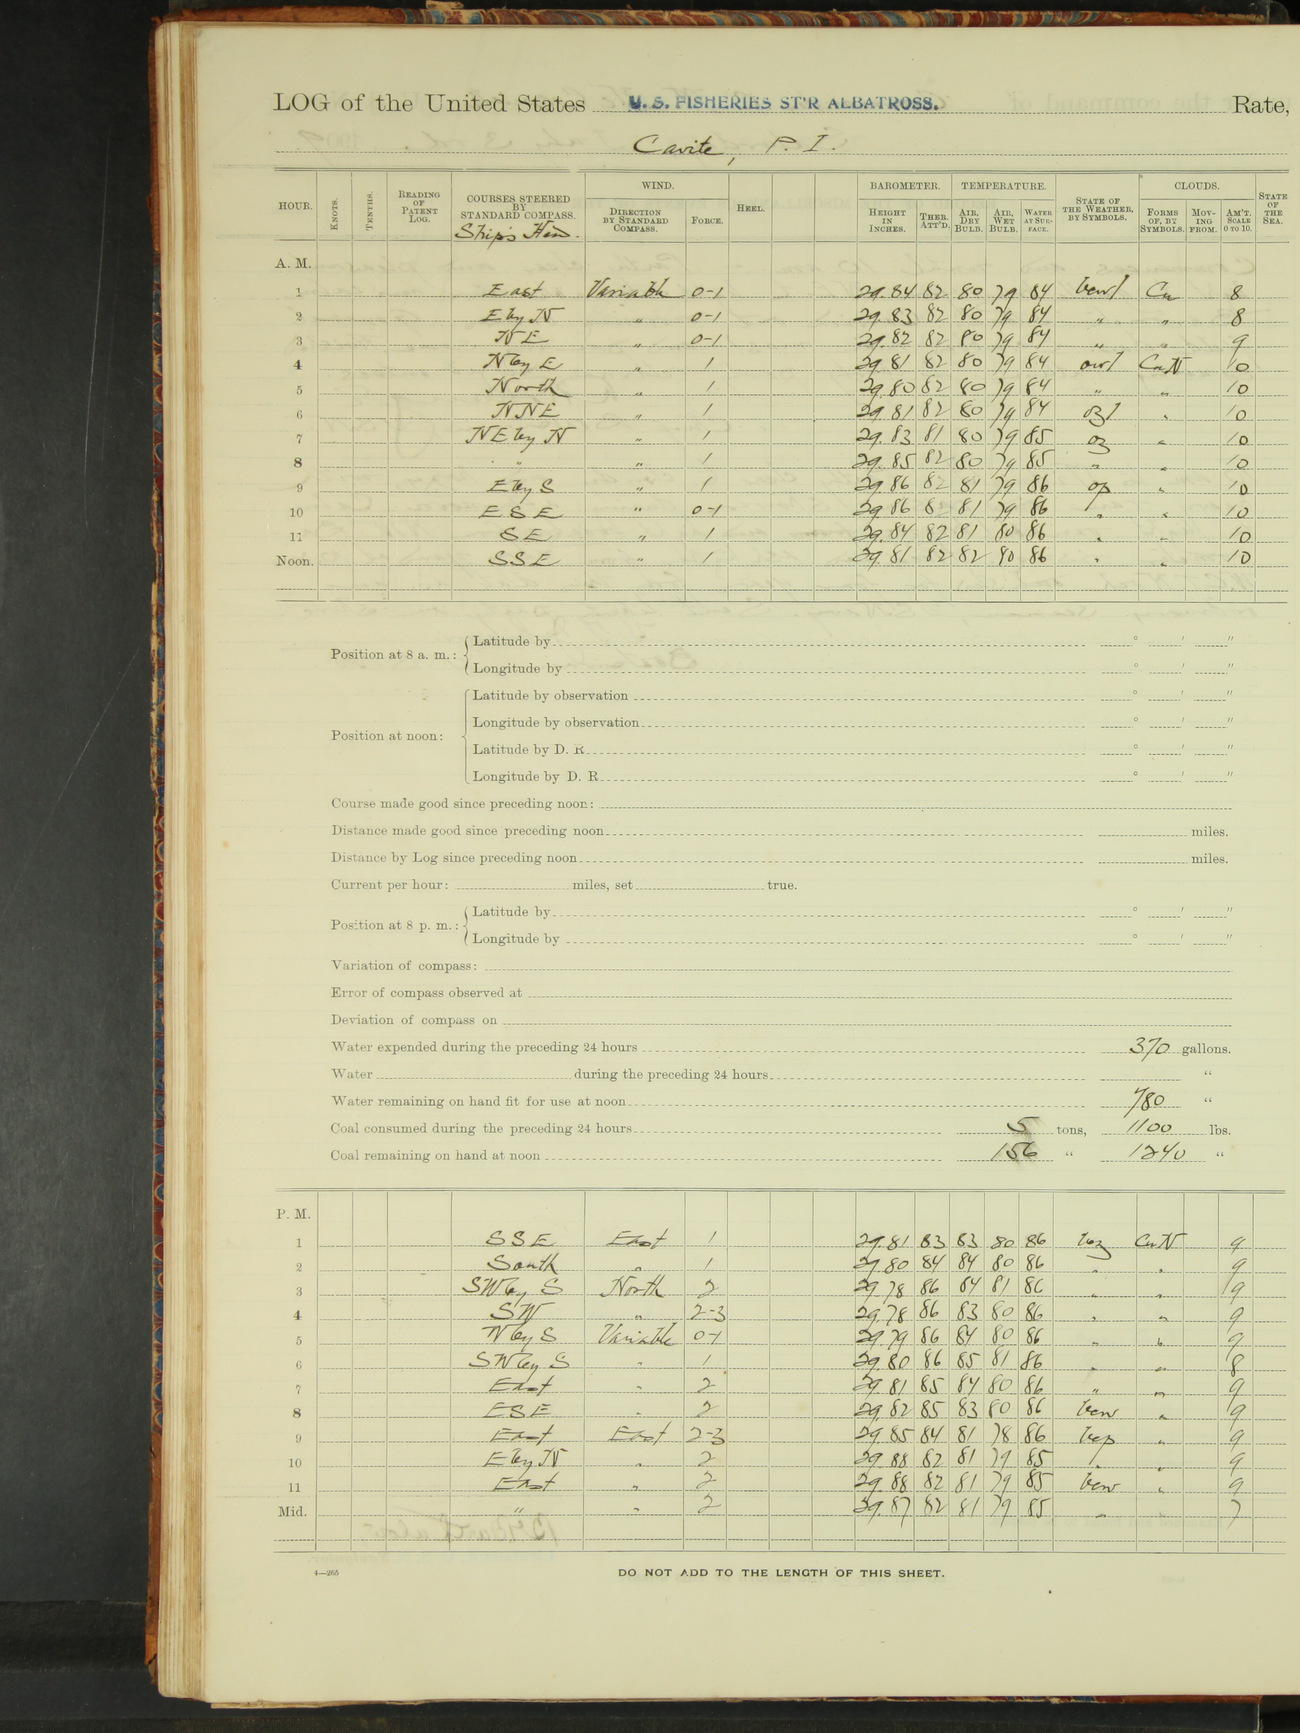 LOG of the United States U. S. FISHERIES ST'R ALBATROSS. Rate,
Cavite, P. I.
HOUR. KNOTS. TENTHS. READING OF PATENT LOG. COURSES STEERED BY STANDARD COMPASS. Ship's Hd. WIND. DIRECTION BY STANDARD COMPASS. FORCE. HEEL. BAROMETER. HEIGHT IN INCHES. THER. ATT'D. TEMPERATURE. AIR, DRY BULB. AIR, WET BULB. WATER AT SURFACE. STATE OF THE WEATHER, BY SYMBOLS. CLOUDS. FORMS OF, BY SYMBOLS. MOVING FROM. AM'T. SCALE 0 TO 10. STATE OF THE SEA.
A. M.
1 East Variable 0-1 29.84 82 80 79 84 Cu 8
2 E by N " 0-1 29.83 82 80 79 84 " " 8
3 NE " 0-1 29.82 82 80 79 84 " " 9
4 N by E " 1 29.81 82 80 79 84 Cu N 10
5 North " 1 29.80 82 80 79 84 " " 10
6 NNE " 1 29.81 82 80 79 84 ozl " 10
7 NE by N " 1 29.83 81 80 79 85 oz " 10
8 " " 1 29.85 82 80 79 85 " " 10
9 E by S " 1 29.86 82 81 79 86 op " 10
10 ESE " 0-1 29.86 82 81 79 86 " " 10
11 SE " 1 29.84 82 81 80 86 " " 10
Noon. SSE " 1 29.81 82 82 80 86 " " 10
Position at 8 a. m.: Latitude by ° ′ ″
Longitude by ° ′ ″
Position at noon: Latitude by observation ° ′ ″
Longitude by observation ° ′ ″
Latitude by D. R. ° ′ ″
Longitude by D. R. ° ′ ″
Course made good since preceding noon:
Distance made good since preceding noon miles.
Distance by Log since preceding noon miles.
Current per hour: miles, set true.
Position at 8 p. m.: Latitude by ° ′ ″
Longitude by ° ′ ″
Variation of compass:
Error of compass observed at
Deviation of compass on
Water expended during the preceding 24 hours 370 gallons.
Water during the preceding 24 hours "
Water remaining on hand fit for use at noon 780 "
Coal consumed during the preceding 24 hours 5 tons, 1100 lbs.
Coal remaining on hand at noon 156 " 1240 "
P. M.
1 SSE East 1 29.81 83 83 80 86 bcz Cu N 9
2 South " 1 29.80 84 84 80 86 " " 9
3 SW by S North 2 29.78 86 84 81 86 " " 9
4 SW " 2-3 29.78 86 83 80 86 " " 9
5 W by S Variable 0-1 29.79 86 84 80 86 " " 9
6 SW by S " 1 29.80 86 85 81 86 " " 8
7 East " 2 29.81 85 84 80 86 " " 9
8 ESE " 2 29.82 85 83 80 86 " 9
9 East East 2-3 29.85 84 81 78 86 bcp " 9
10 E by N " 2 29.88 82 81 79 85 " " 9
11 East " 2 29.88 82 81 79 85 " 9
Mid. " " 2 29.87 82 81 79 85 " 7
4—265
DO NOT ADD TO THE LENGTH OF THIS SHEET.